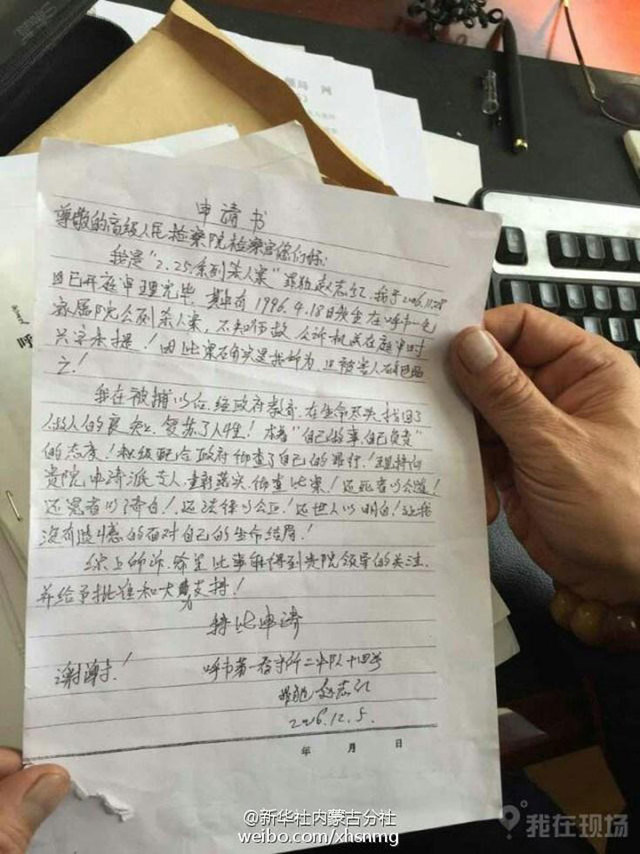 申请书
尊敬的高级人民检察院检察官您们好:
我是“2.25系列杀人案”罪犯赵志红,我于2006.11.28
日已开庭审理完毕,其中有1996.4.18日发生在呼市一毛
家属院公厕杀人案,不知何故,公诉机关在庭审时
只字未提!因此案确实是我所为,且被害人确已死
亡!
我在被捕以后,经政府教育,在生命尽头找回了
做人的良知,复苏了人性!本着“自己做事,自己负责”
的态度!积极配合政府彻查了自己的罪行!现特向
贵院申请派专人重新落实,彻查此案!还死者以公道!
还冤者以清白!还法律以公正!还世人以明白!让我
没有遗憾的面对自己的生命结局!
综上所诉,希望此事能得到贵院领导的关注,
并给予批准和大力支持!
特此申请
谢谢!
呼市第一看守所二中队十四号
罪犯 赵志红
2006.12.5.
年 月 日
@新华社内蒙古分社
weibo.com/xhsnmg
我在现场